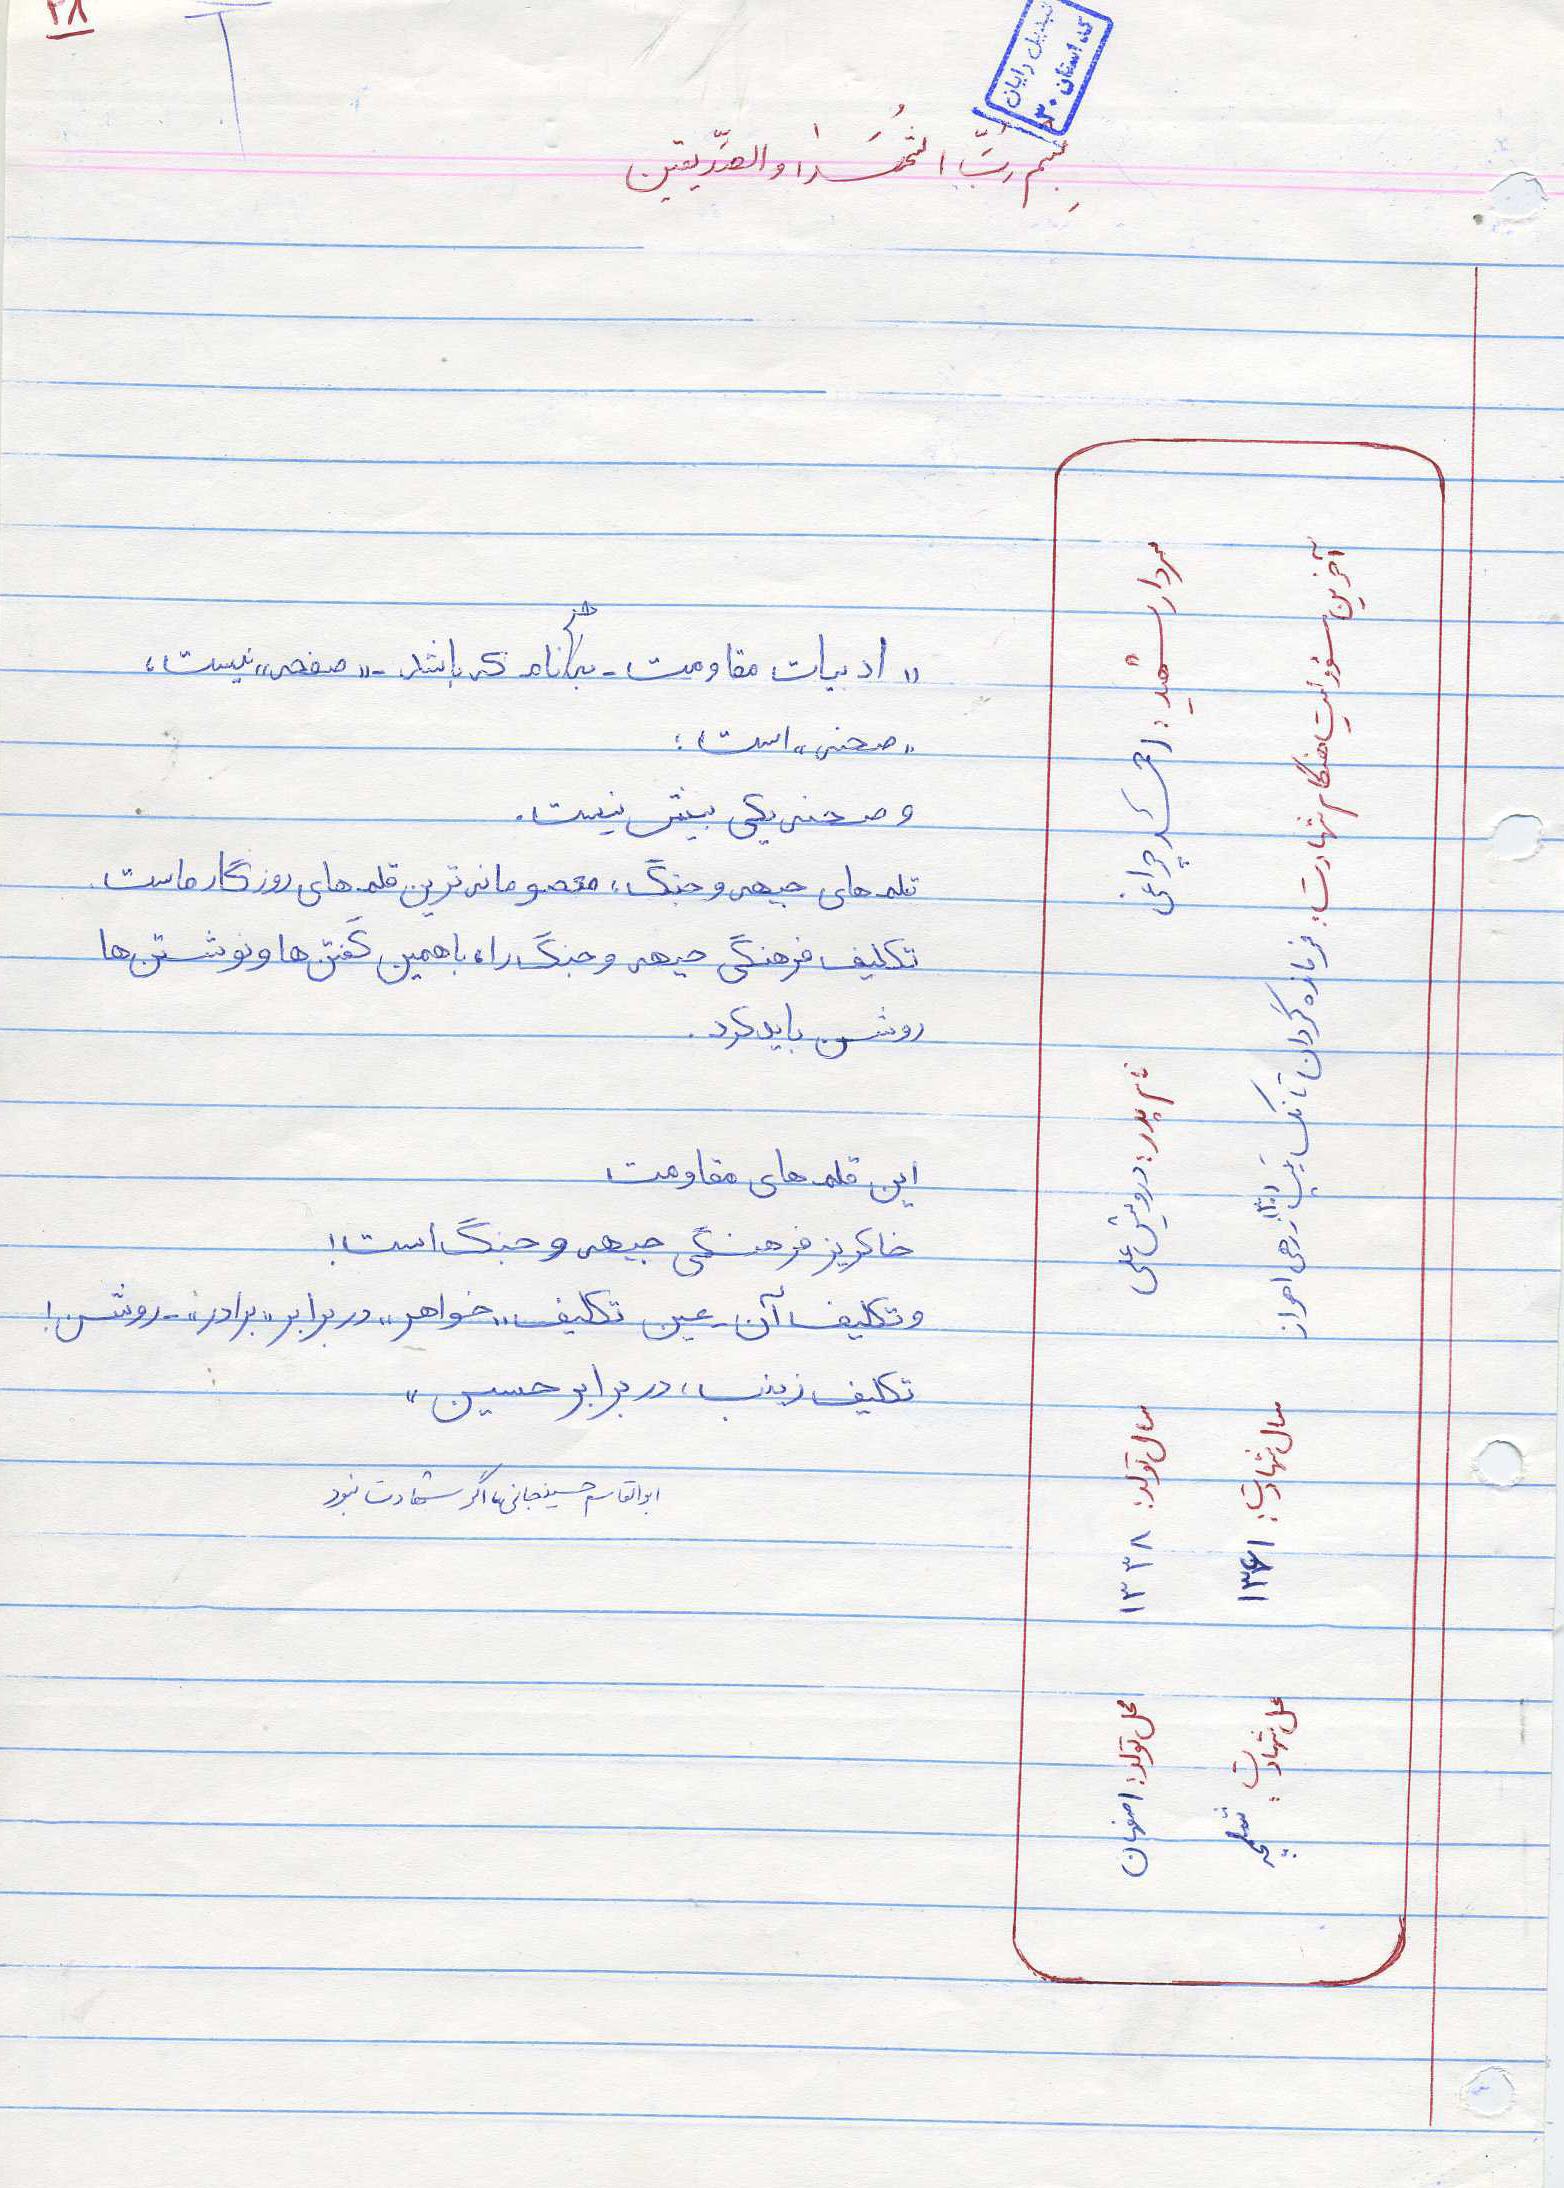 ۳۸
تبدیل رایان
کد استان ۳۰
بسم ربّ الشّهداء والصّدیقین
سردار شهید: احمد چراغی
آخرین مسؤولیت هنگام شهادت: فرمانده گردان تانک تیپ زرهی اهواز
نام پدر: درویش علی
سال تولد: ۱۳۳۸
سال شهادت: ۱۳۶۱
محل تولد: اصفهان
محل شهادت: شلمچه
«ادبیات مقاومت - به هر نام که باشد - «صفحه» نیست،
«صحنه» است؛
و صحنه یکی بیش نیست.
قلم های جبهه و جنگ، معصومانه ترین قلم های روزگار ماست.
تکلیف فرهنگی جبهه و جنگ را، با همین گفتن ها و نوشتن ها
روشن باید کرد.
این قلم های مقاومت
خاکریز فرهنگی جبهه و جنگ است!
و تکلیف آن - عین تکلیف «خواهر» در برابر «برادر» - روشن!
تکلیف زینب، در برابر حسین»
ابوالقاسم حسینجانی، اگر شهادت نبود